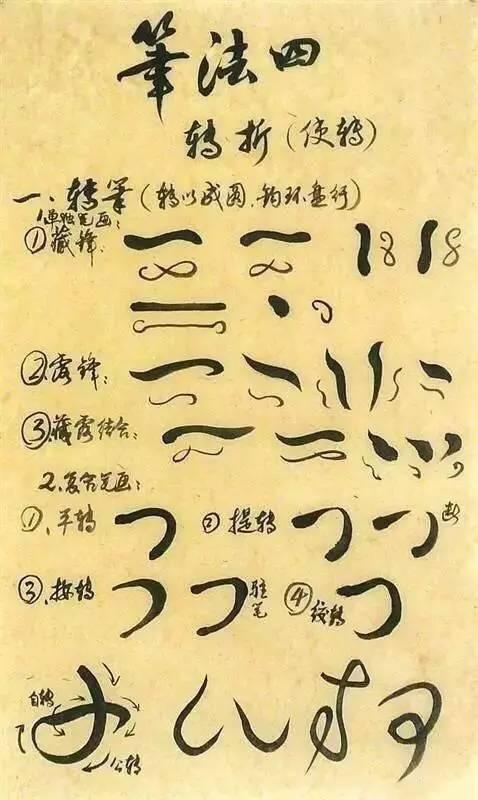 筆法四
转折（使转）
一、转筆（转以成圆，钩环盘行）
1.单独笔画：
①藏锋：
②露锋：
③藏露结合：
2.复合笔画：
①、平转 ②提转 断
③、按转 驻笔 ④绞转
自转
公转